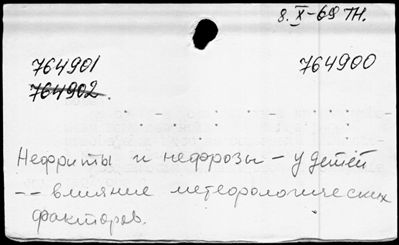 8. X-69 ТН.
764901 764900
764902.
Нефриты и нефрозы – у детей
-- влияние метеорологических
факторов.